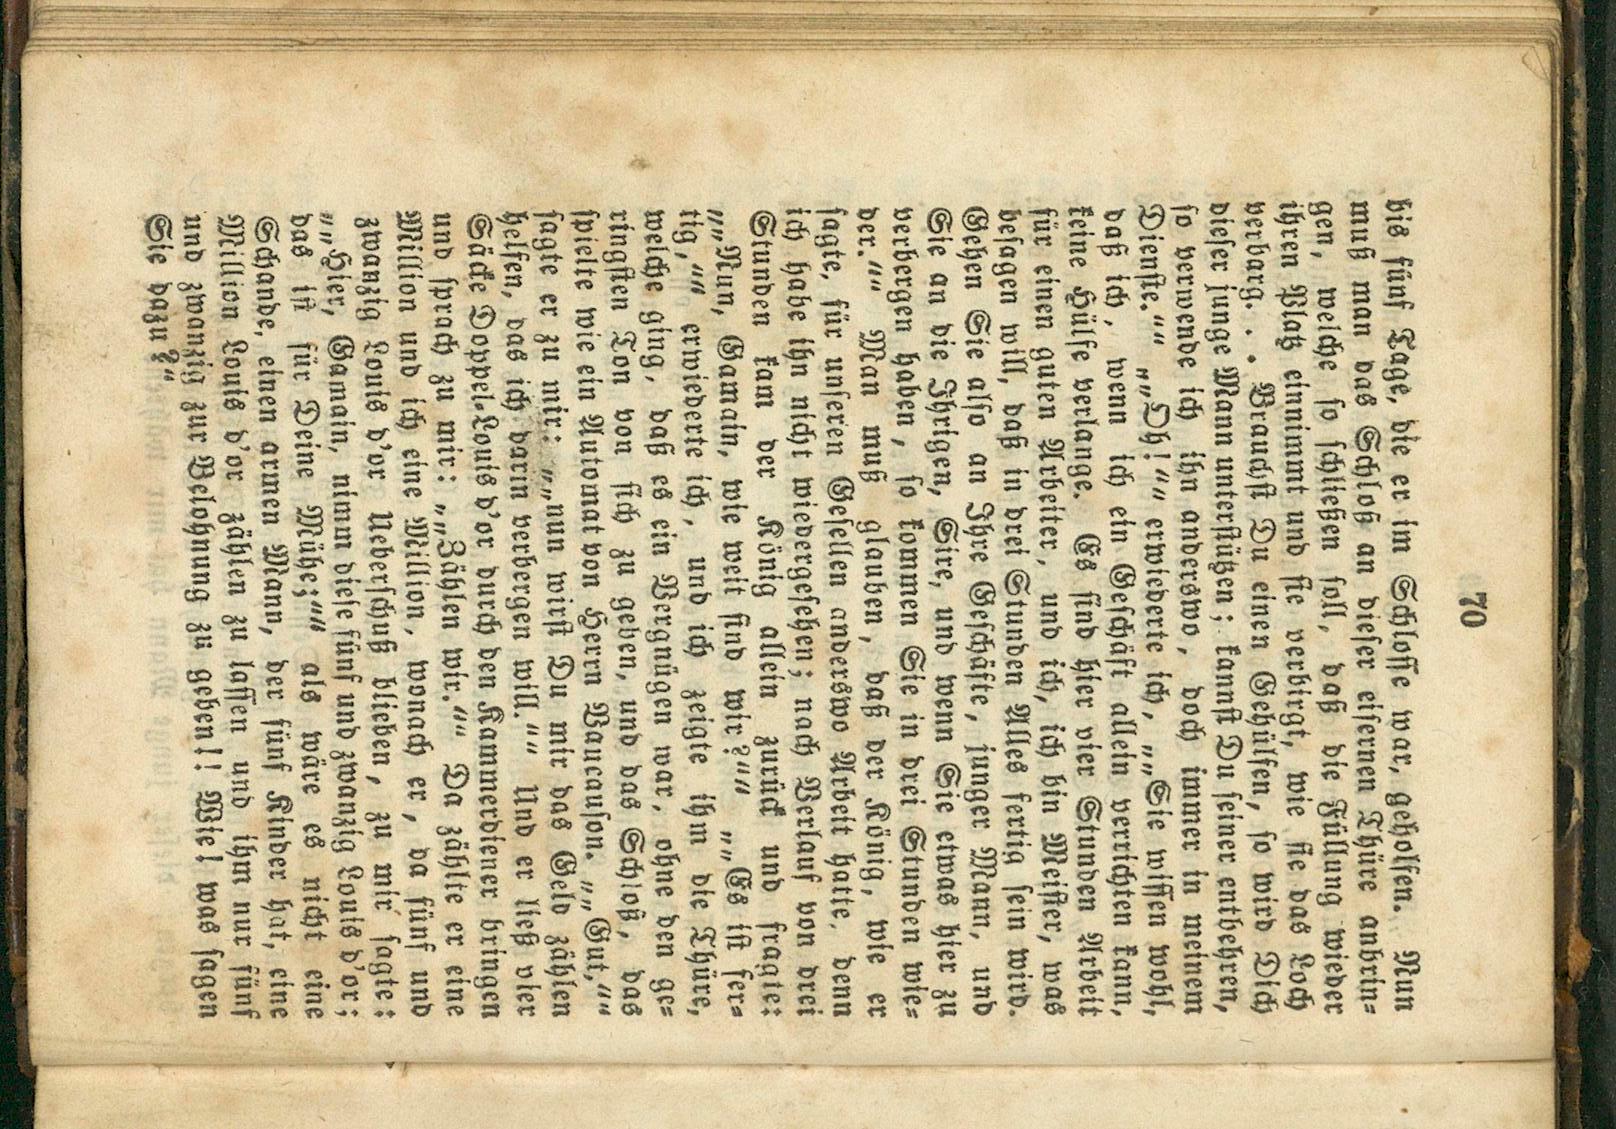 70
bis fünf Tage, die er im Schlosse war, geholfen. Nun
muß man das Schloß an dieser eisernen Thüre anbrin=
gen, welche so schließen soll, daß die Füllung wieder
ihren Platz einnimmt und sie verbirgt, wie sie das Loch
verbarg. . . Brauchst Du einen Gehülfen, so wird Dich
dieser junge Mann unterstützen; kannst Du seiner entbehren,
so verwende ich ihn anderswo, doch immer in meinem
Dienste.““ „„Oh!““ erwiederte ich, „„Sie wissen wohl,
daß ich, wenn ich ein Geschäft allein verrichten kann,
keine Hülfe verlange. Es sind hier vier Stunden Arbeit
für einen guten Arbeiter, und ich, ich bin Meister, was
besagen will, daß in drei Stunden Alles fertig sein wird.
Gehen Sie also an Ihre Geschäfte, junger Mann, und
Sie an die Ihrigen, Sire, und wenn Sie etwas hier zu
verbergen haben, so kommen Sie in drei Stunden wie=
der.““ Man muß glauben, daß der König, wie er
sagte, für unseren Gesellen anderswo Arbeit hatte, denn
ich habe ihn nicht wiedergesehen; nach Verlauf von drei
Stunden kam der König allein zurück und fragte:
„„Nun, Gamain, wie weit sind wir?““ „„Es ist fer=
tig,““ erwiederte ich, und ich zeigte ihm die Thüre,
welche ging, daß es ein Vergnügen war, ohne den ge=
ringsten Ton von sich zu geben, und das Schloß, das
spielte wie ein Automat von Herrn Vaucanson. „„Gut,““
sagte er zu mir: „„nun wirst Du mir das Geld zählen
helfen, das ich darin verbergen will.““ Und er ließ vier
Säcke Doppel-Louis d'or durch den Kammerdiener bringen
und sprach zu mir: „„Zählen wir.““ Da zählte er eine
Million und ich eine Million, wonach er, da fünf und
zwanzig Louis d'or Ueberschuß blieben, zu mir sagte:
„„Hier, Gamain, nimm diese fünf und zwanzig Louis d'or;
das ist für Deine Mühe;““ als wäre es nicht eine
Schande, einen armen Mann, der fünf Kinder hat, eine
Million Louis d'or zählen zu lassen und ihm nur fünf
und zwanzig zur Belohnung zu geben!! Wie! was sagen
Sie dazu?“